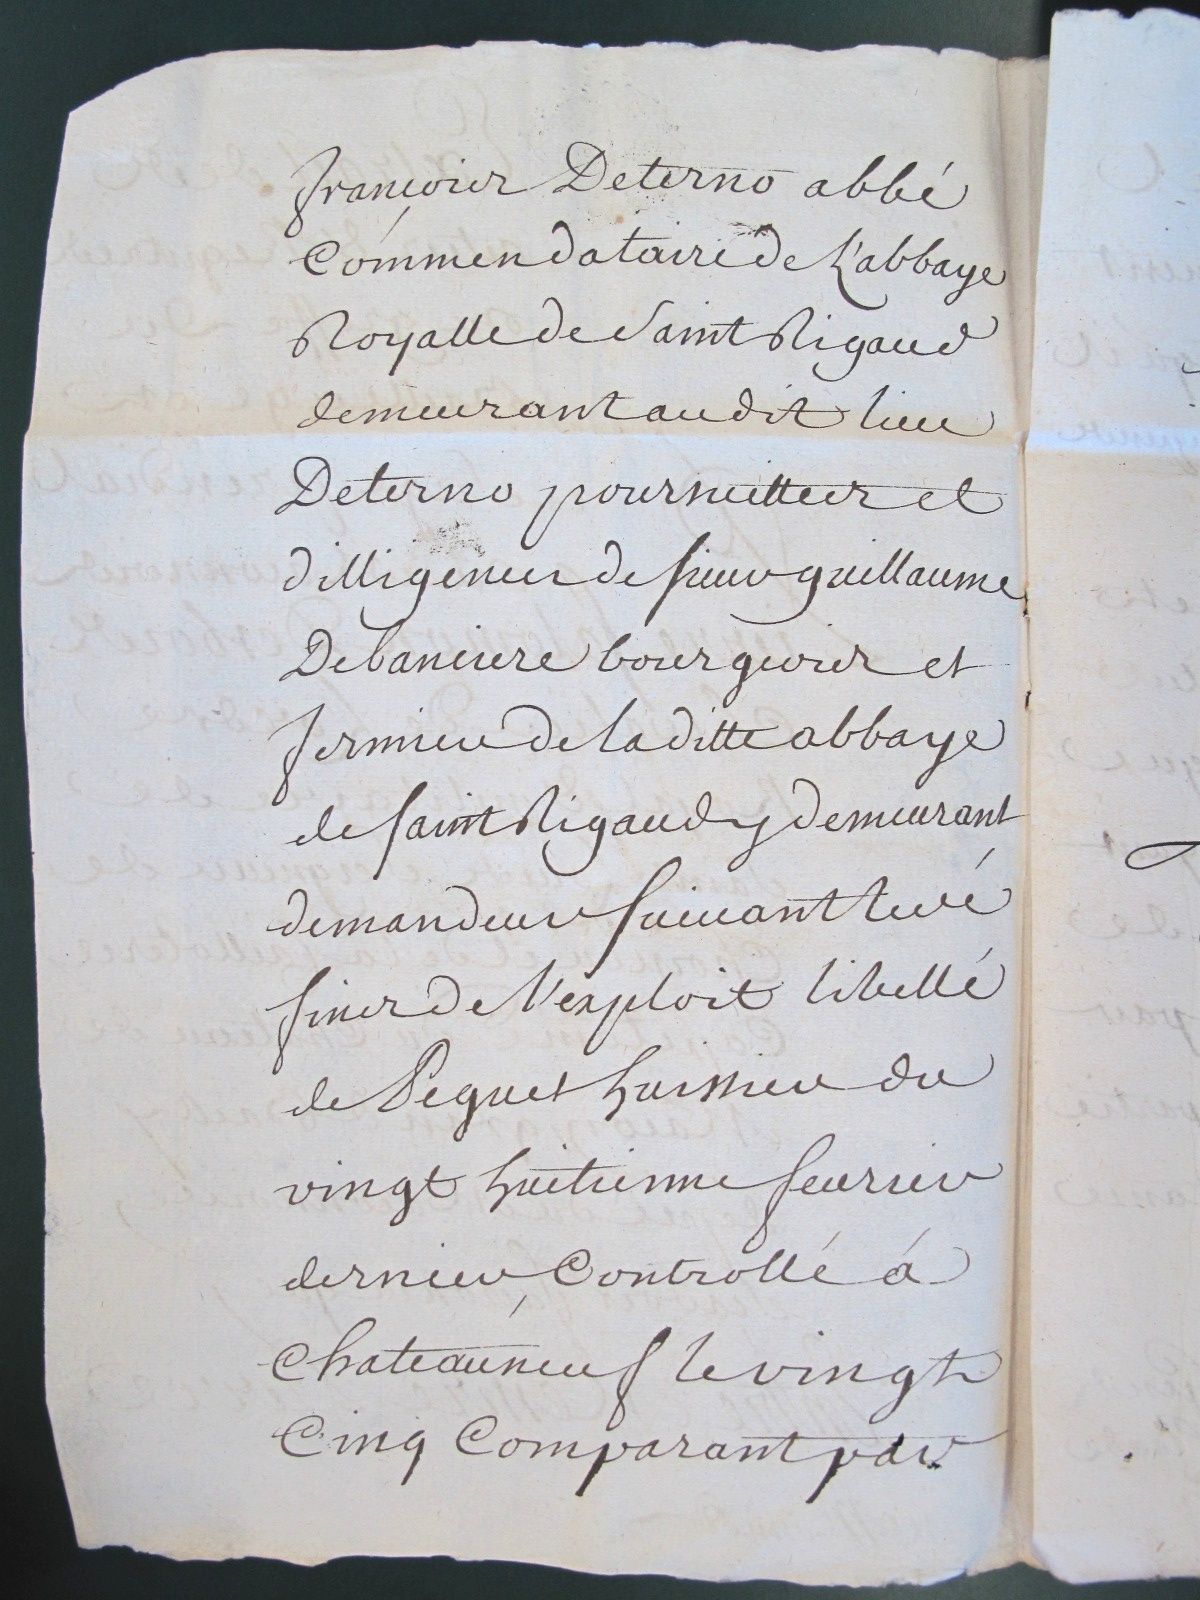 françois Deterno abbé
Commendataire de L'abbaye
Royalle de Saint Rigaud
demeurant audit lieu
Deterno poursuitter et
dilligences de sieur guillaume
Debaniere bourgeois et
fermier de laditte abbaye
de saint Rigaud y demeurant
demandeur suivant les
fins de l'exploit libellé
de Peguet huissier du
vingt huitieme feurier
dernier Controllé á
Chateauneuf le vingt
Cinq Comparant par